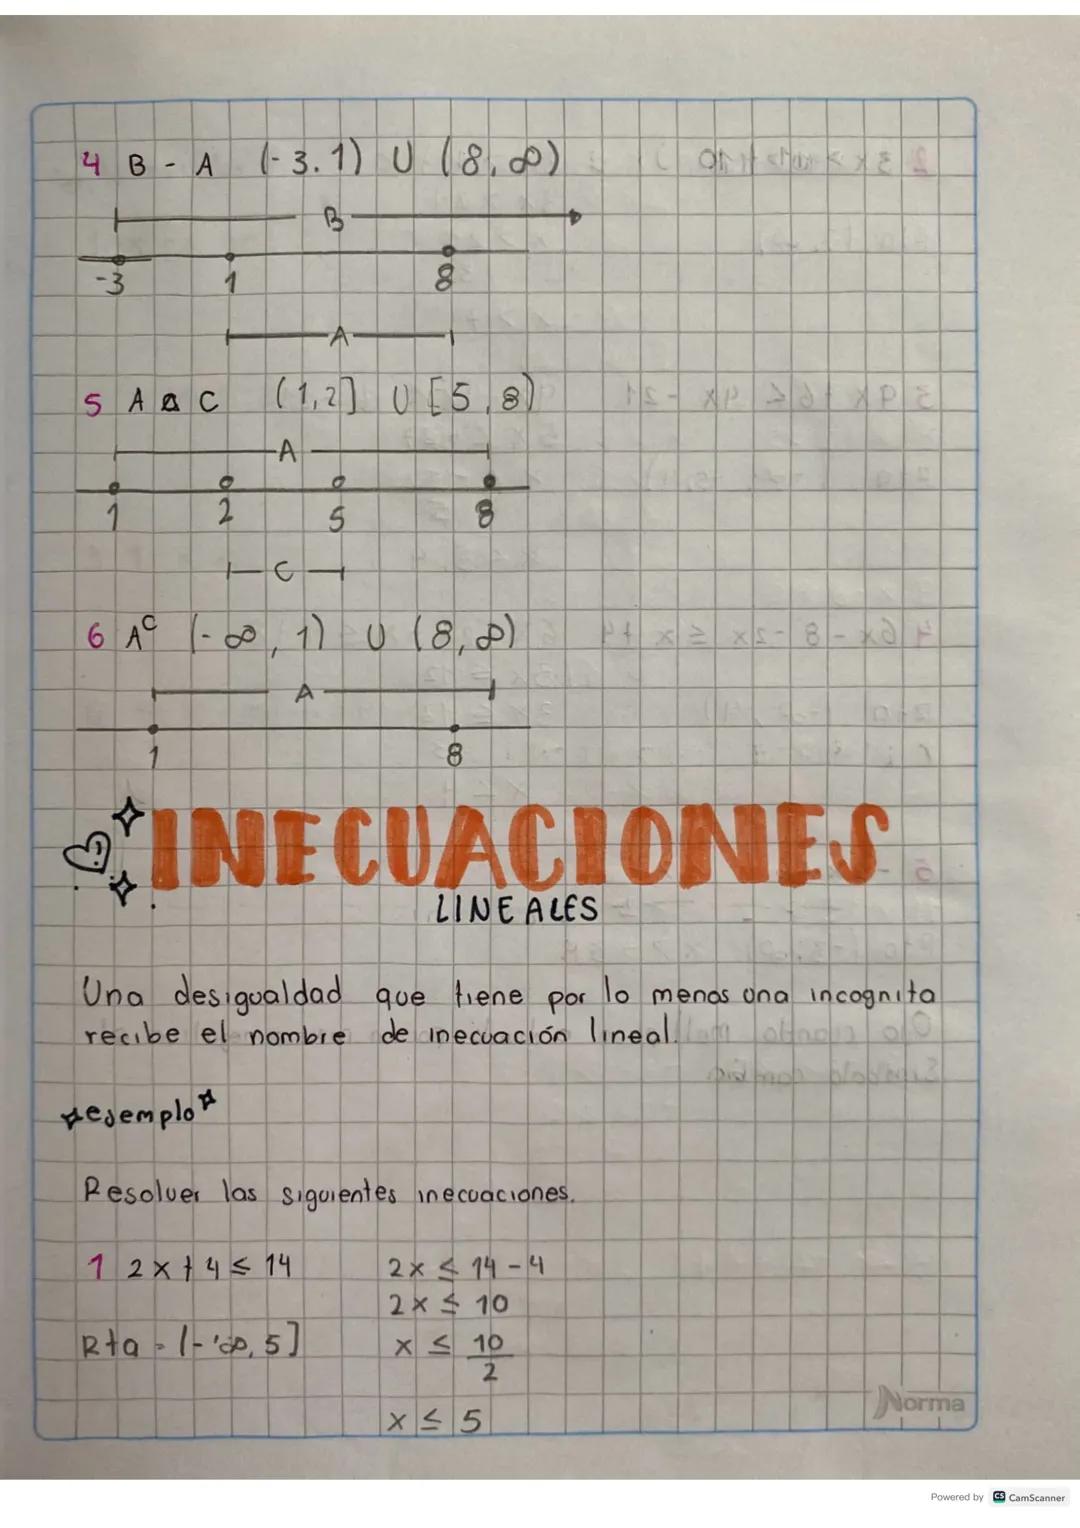 4 B - A (-3.1) U (8,∞)
B
-3 1 8
A
5 A Δ C (1,2] U [5,8)
A
1 2 5 8
C
6 Aᶜ (-∞, 1) U (8,∞)
A
1 8
INECUACIONES
LINEALES
Una desigualdad que tiene por lo menos una incognita
recibe el nombre de inecuación lineal.
ejemplo
Resolver las siguientes inecuaciones.
1 2x + 4 ≤ 14 2x ≤ 14 - 4
2x ≤ 10
Rta = (-∞, 5] x ≤ 10/2
x ≤ 5
Norma
Powered by CS CamScanner